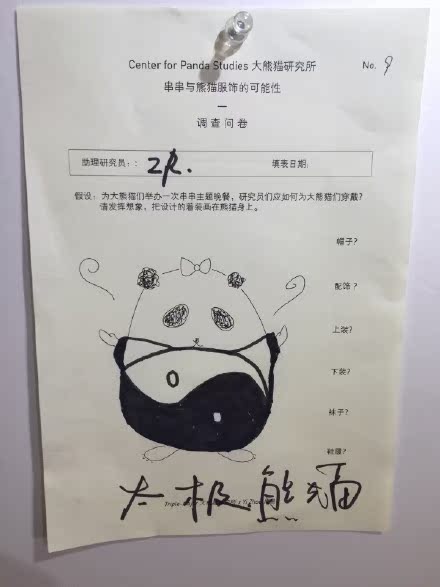 Center for Panda Studies 大熊猫研究所
No. 9
串串与熊猫服饰的可能性
—
调查问卷
助理研究员：:
填表日期:
假设：为大熊猫们举办一次串串主题晚餐，研究员们应如何为大熊猫们穿戴？
请发挥想象，把设计的着装画在熊猫身上。
帽子？
配饰？
上装？
下装？
袜子？
鞋履？
太极熊猫